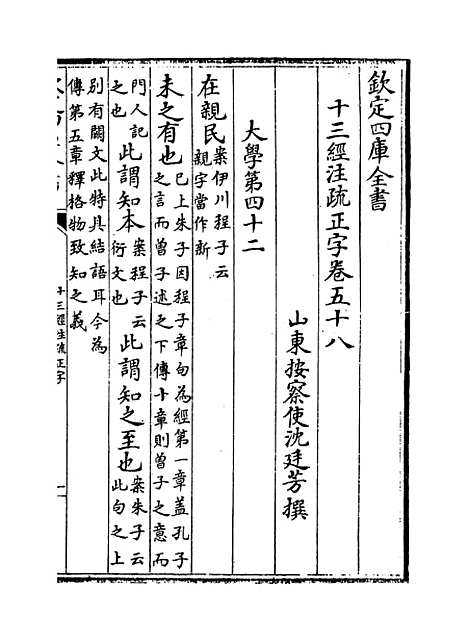 欽定四庫全書
十三經注疏正字卷五十八
山東按察使沈廷芳撰
大學第四十二
在親民案伊川程子云親字當作新
未之有也已上朱子因程子章句為經第一章蓋孔子之言而曾子述之下傳十章則曾子之意而
門人記之也此謂知本案程子云衍文也此謂知之至也案朱子云此句之上
別有闕文此特具結語耳今為傳第五章釋格物致知之義
十三經注疏正字